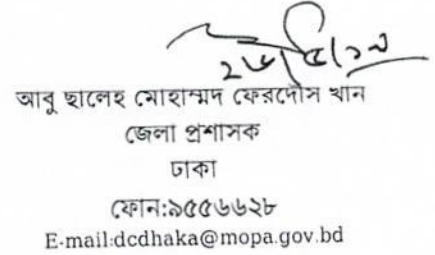 ২৬/৫/১৯
আবু ছালেহ মোহাম্মদ ফেরদৌস খান
জেলা প্রশাসক
ঢাকা
ফোন:৯৫৫৬৬২৮
E-mail:dcdhaka@mopa.gov.bd